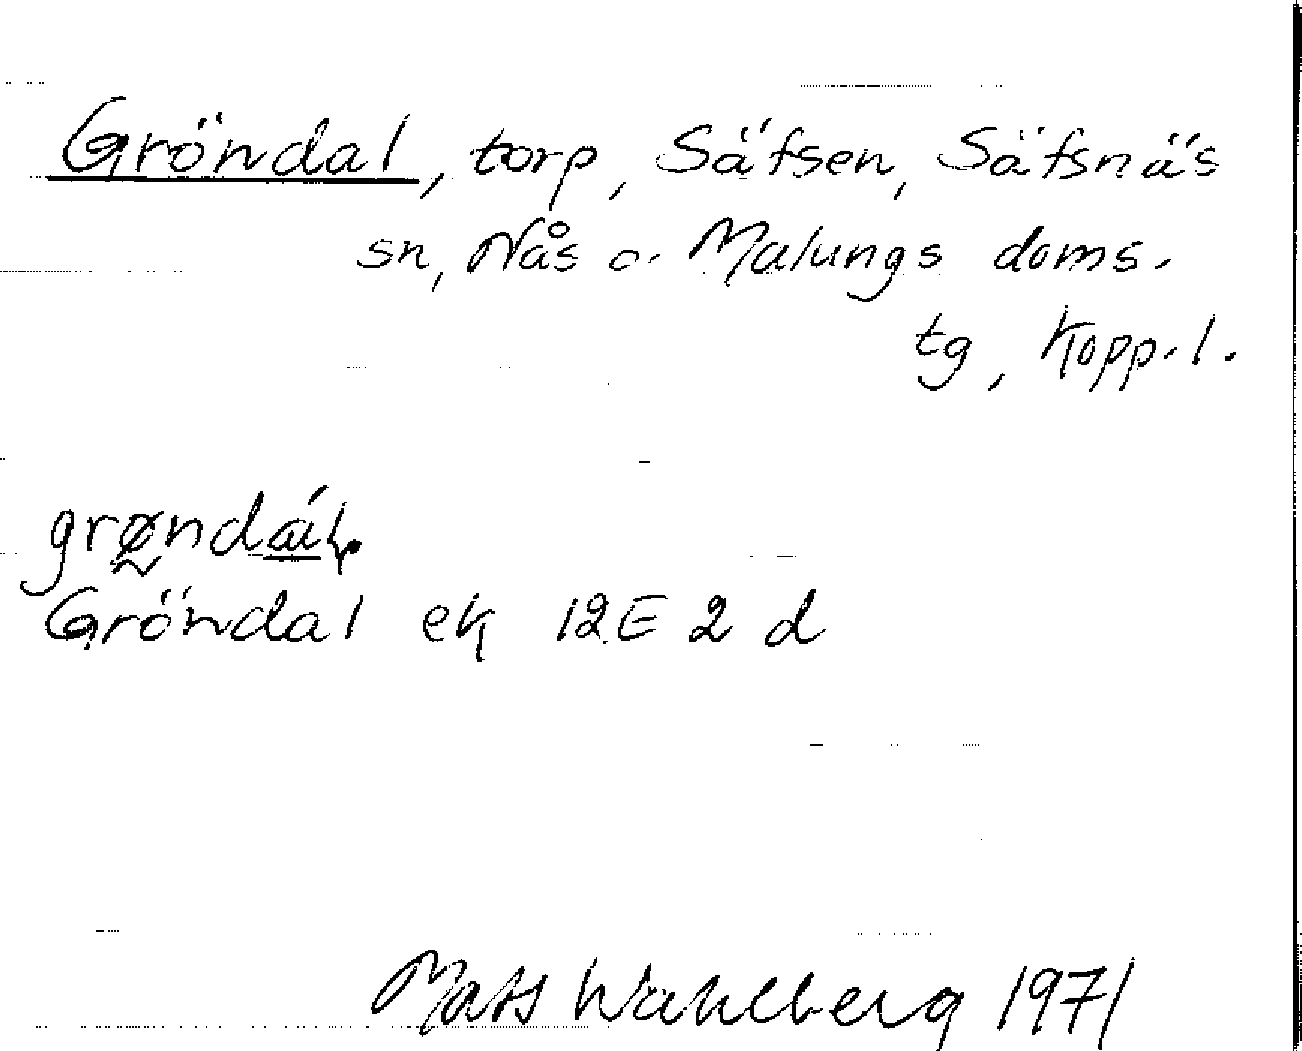 Gröndal, torp, Säfsen, Säfsnäs
sn, Nås o. Malungs doms.
tg, Kopp. l.
grøndál.
Gröndal ek 12E 2 d
Mats Wahlberg 1971